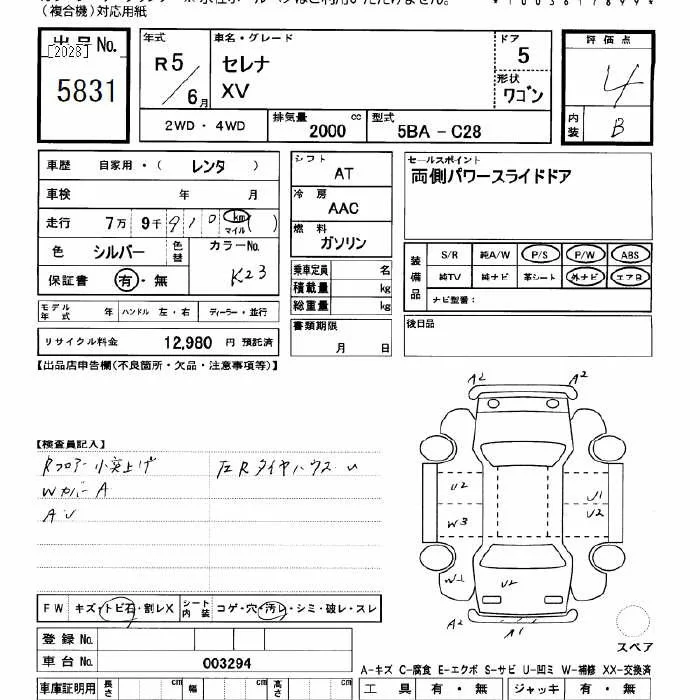 (複合機)対応用紙
出品No.
[2028]
5831
年式
R5
6月
車名・グレード
セレナ
XV
ドア
5
形状
ワゴン
評価点
4
内装
B
2WD・4WD
排気量 cc
2000
型式
5BA - C28
車歴 自家用・( レンタ )
車検 年 月
走行 7万 9千 910 km マイル ( )
色 シルバー 色替 カラーNo.
K23
保証書 有・無
モデル年式 年 ハンドル 左・右 ディーラー・並行
リサイクル料金 12,980 円 預託済
シフト
AT
冷房
AAC
燃料
ガソリン
乗車定員 名
積載量 kg
総重量 kg
書類期限
月 日
セールスポイント
両側パワースライドドア
装備品
S/R 純A/W P/S P/W ABS
純TV 純ナビ 革シート 外ナビ エアB
ナビ型番:
後日品
【出品店申告欄(不良箇所・欠品・注意事項等)】
【検査員記入】
Rフロアー小突上げ 左RタイヤハウスU
WカバーA
AU
A2 A2
U2 U1
U2
W3
W1 U2
A2 A1
スペア
FW キズ・トビ石・割レX シート内装 コゲ・穴・汚レ・シミ・破レ・スレ
登録No.
車台No. 003294
A-キズ C-腐食 E-エクボ S-サビ U-凹ミ W-補修 XX-交換済
車庫証明用 長さ cm 幅 cm 高さ cm
工具 有・無 ジャッキ 有・無